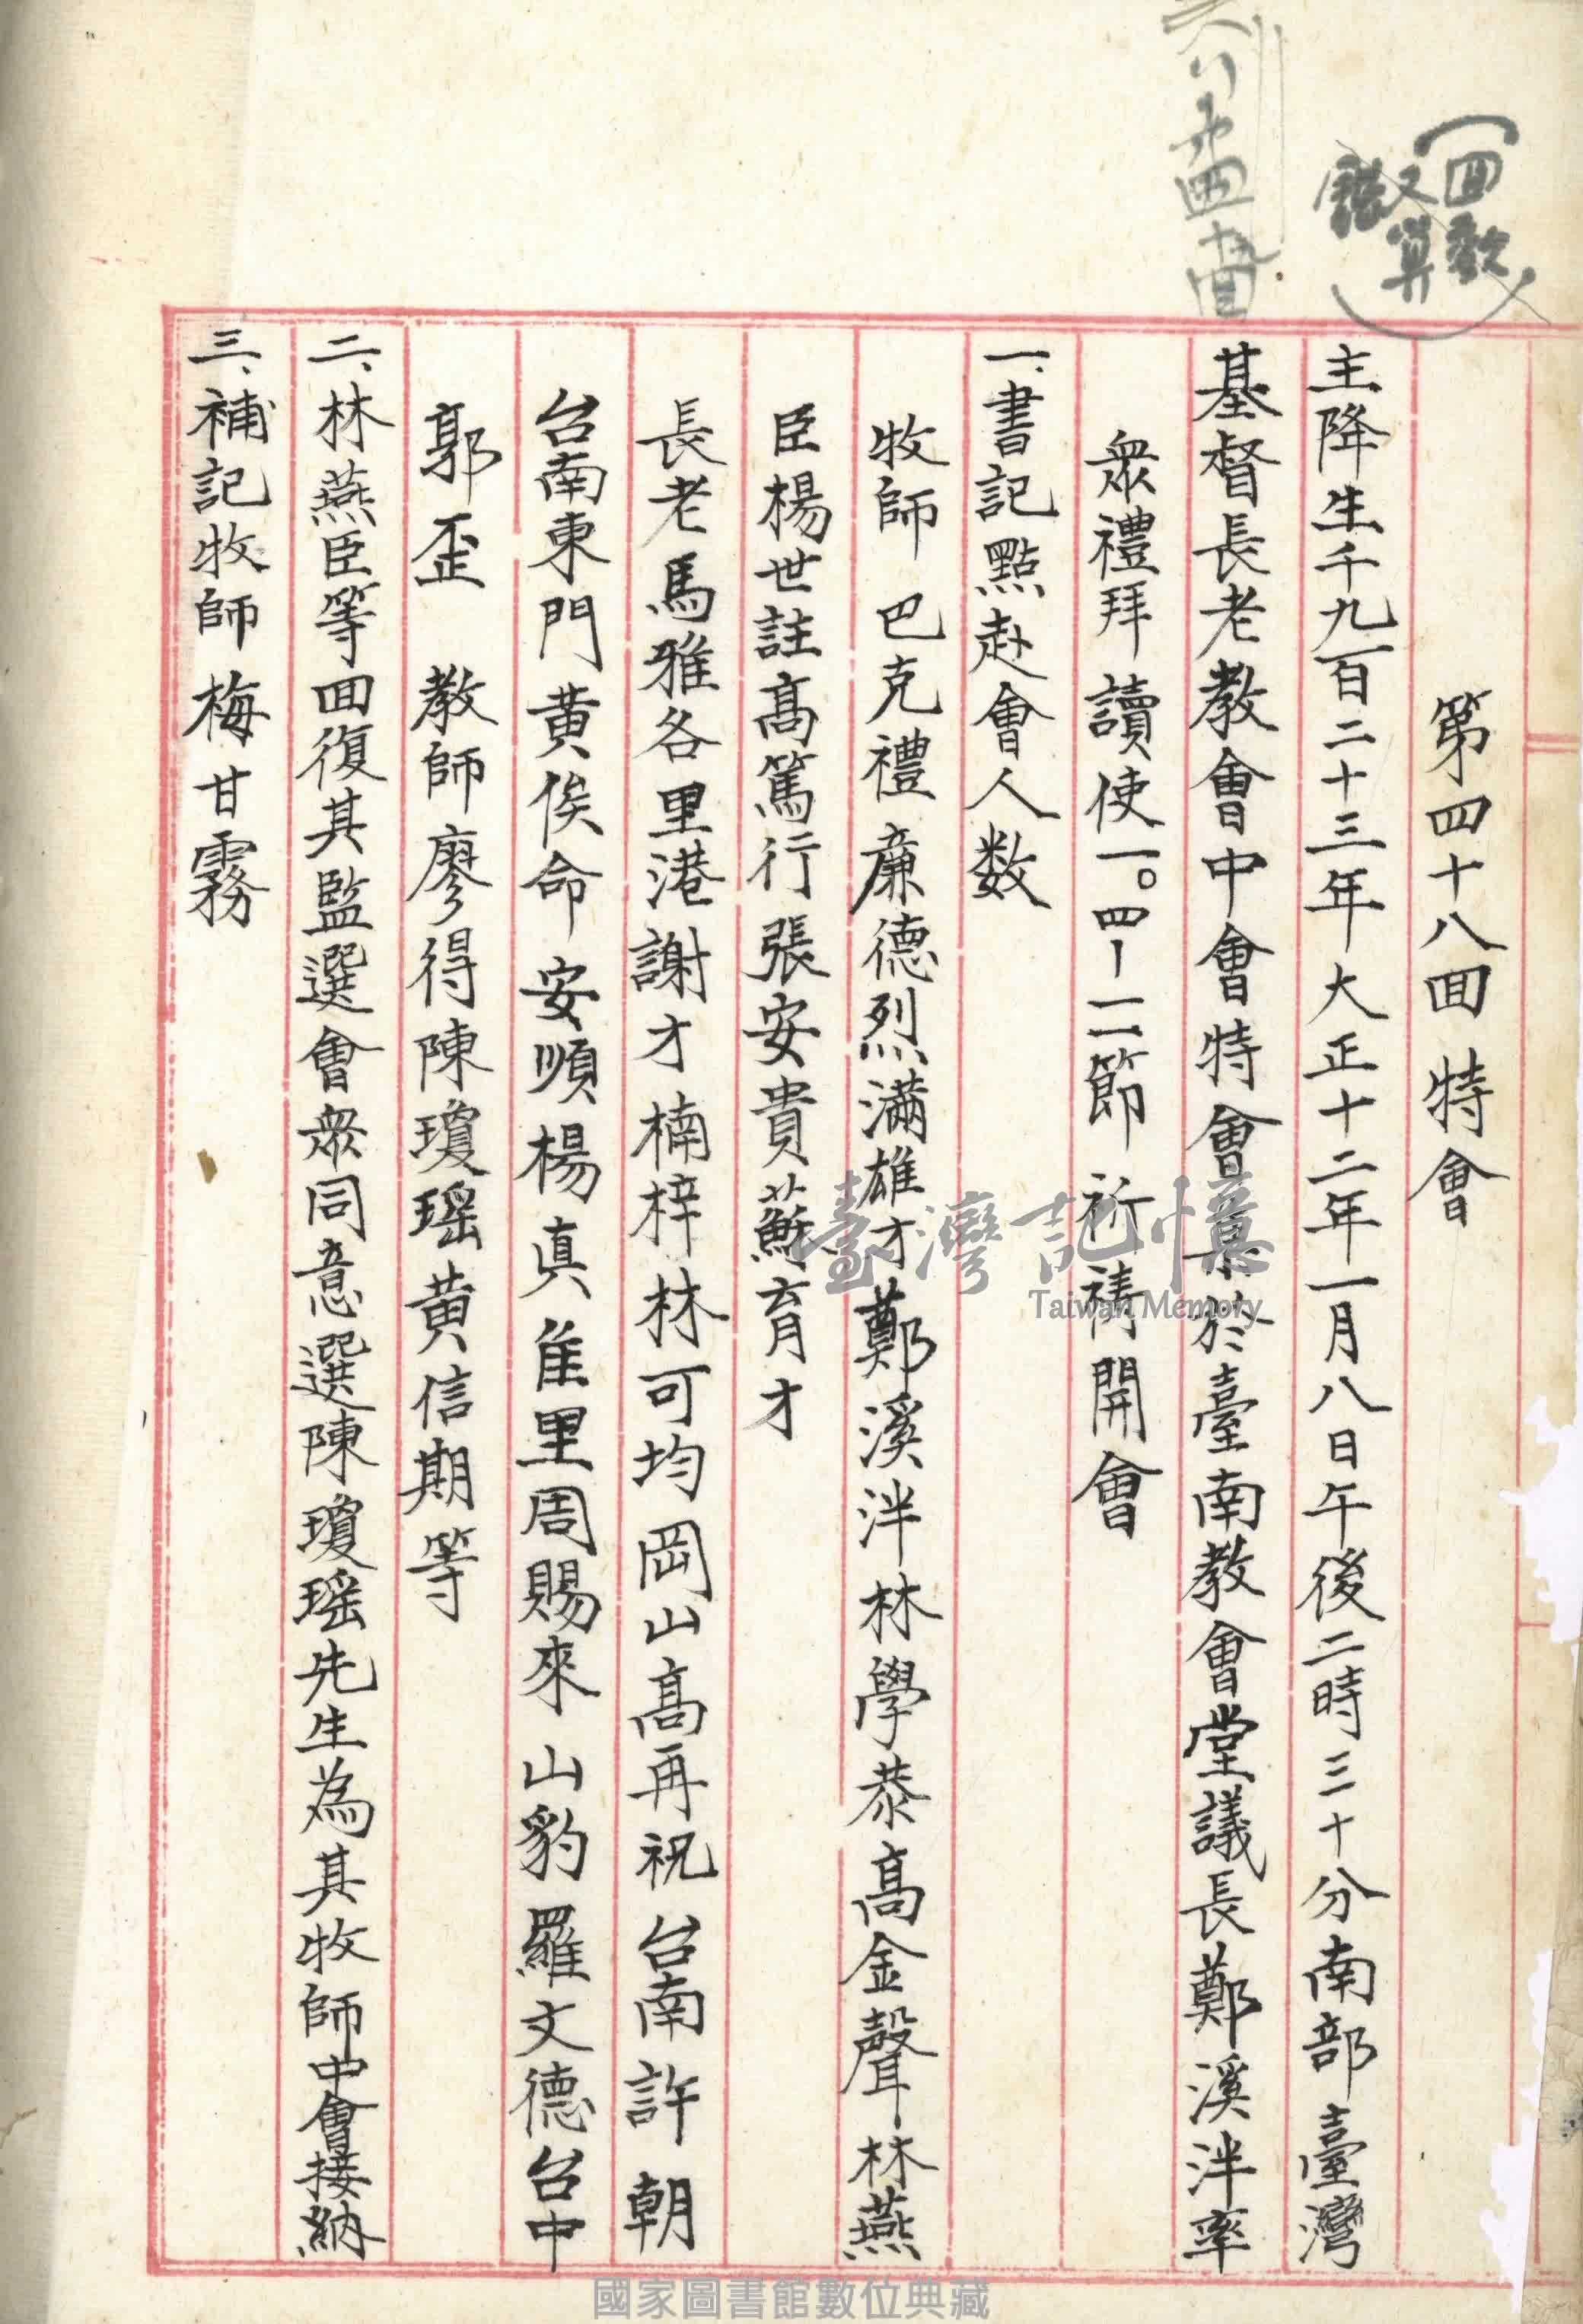 (回數
又算
錯)
第四十八回 特會
主降生千九百二十三年大正十二年一月八日午後二時三十分南部臺灣
基督長老教會中會特會集於臺南教會堂議長鄭溪泮率
眾禮拜讀使一〇四-一二節 祈禱開會
一、書記點赴會人数
牧師 巴克禮 廉德烈 滿雄才 鄭溪泮 林學恭 高金聲 林燕
臣 楊世註 高篤行 張安貴 蘇育才
長老 馬雅各 里港謝才 楠梓林可均 岡山高再祝 台南許朝
台南東門黃俟命 安順楊真 隹里周賜來 山豹羅文德 台中
郭歪 教師廖得 陳瓊瑤 黃信期等
二、林燕臣等回復其監選會眾同意選陳瓊瑤先生為其牧師中會接納
三、補記牧師 梅甘霧
臺灣記憶
Taiwan Memory
國家圖書館數位典藏